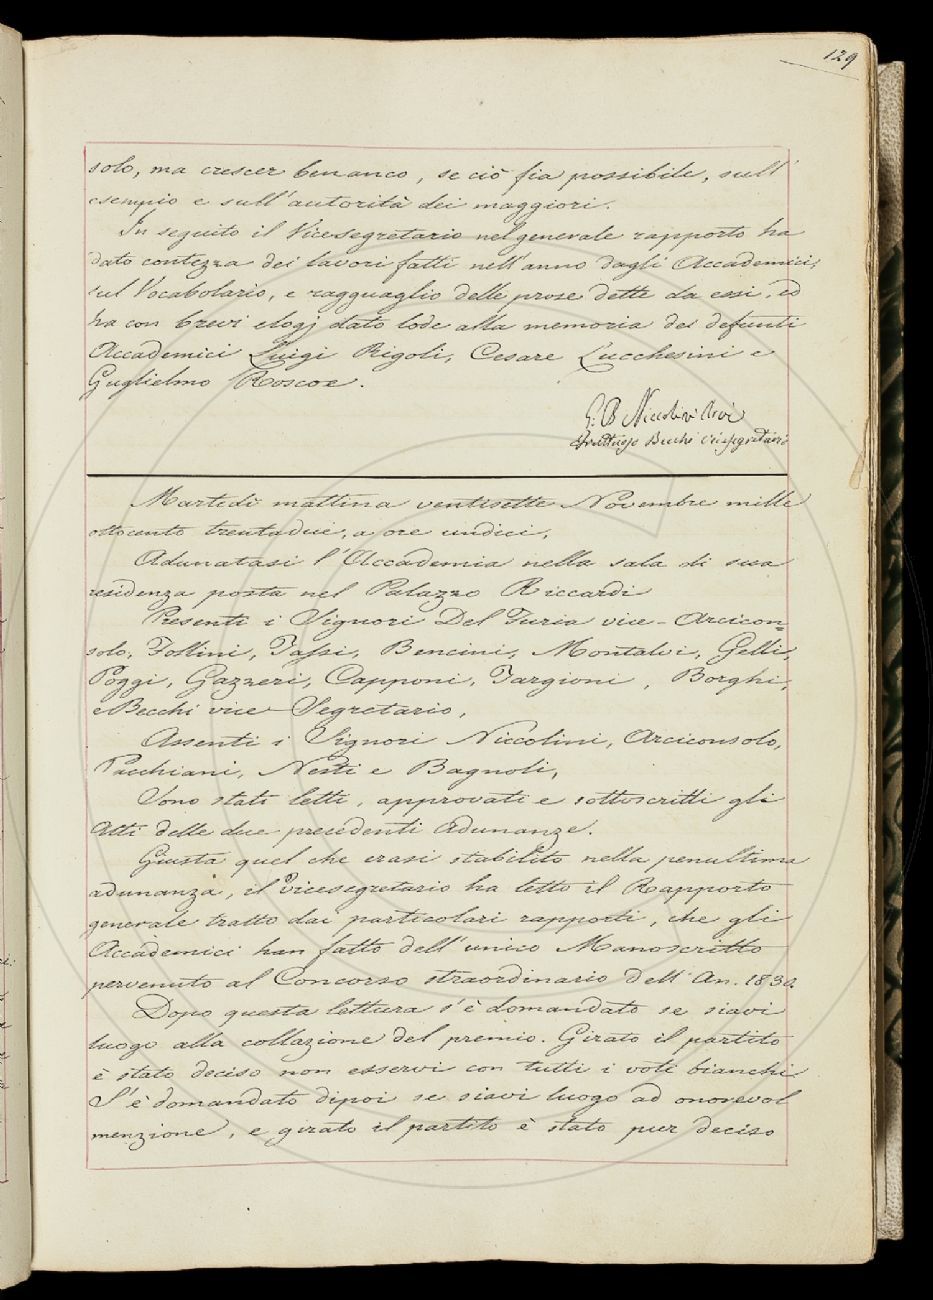 129
solo, ma crescer benanco, se ciò fia possibile, sull'
esempio e sull'autorità dei maggiori.
In seguito il Vicesegretario nel generale rapporto ha
dato contezza dei lavori fatti nell'anno dagli Accademici
sul Vocabolario, e ragguaglio delle prose dette da essi, ed
ha con brevi elogj dato lode alla memoria dei defunti
Accademici Luigi Rigoli, Cesare Lucchesini e
Guglielmo Roscoe.
G. B. Niccolini
Fruttuoso Becchi vicesegretario
Martedì mattina ventisette Novembre mille
ottocento trentadue, a ore undici,
Adunatasi l'Accademia nella sala di sua
residenza posta nel Palazzo Riccardi
Presenti i Signori Del Furia vice-Arcicon=
solo, Follini, Tassi, Bencini, Montalvi, Gelli,
Poggi, Gazzeri, Capponi, Targioni, Borghi,
e Becchi vice-Segretario,
Assenti i Signori Niccolini, Arciconsolo,
Pacchiani, Nesti e Bagnoli,
Sono stati letti, approvati e sottoscritti gli
Atti delle due precedenti Adunanze.
Giusta quel che erasi stabilito nella penultima
adunanza, il Vicesegretario ha letto il Rapporto
generale tratto dai particolari rapporti, che gli
Accademici han fatto dell'unico Manoscritto
pervenuto al Concorso straordinario dell'An. 1830.
Dopo questa lettura s'è domandato se siavi
luogo alla collazione del premio. Girato il partito
è stato deciso non esservi con tutti i voti bianchi.
S'è domandato dipoi se siavi luogo ad onorevol
menzione, e girato il partito è stato pur deciso